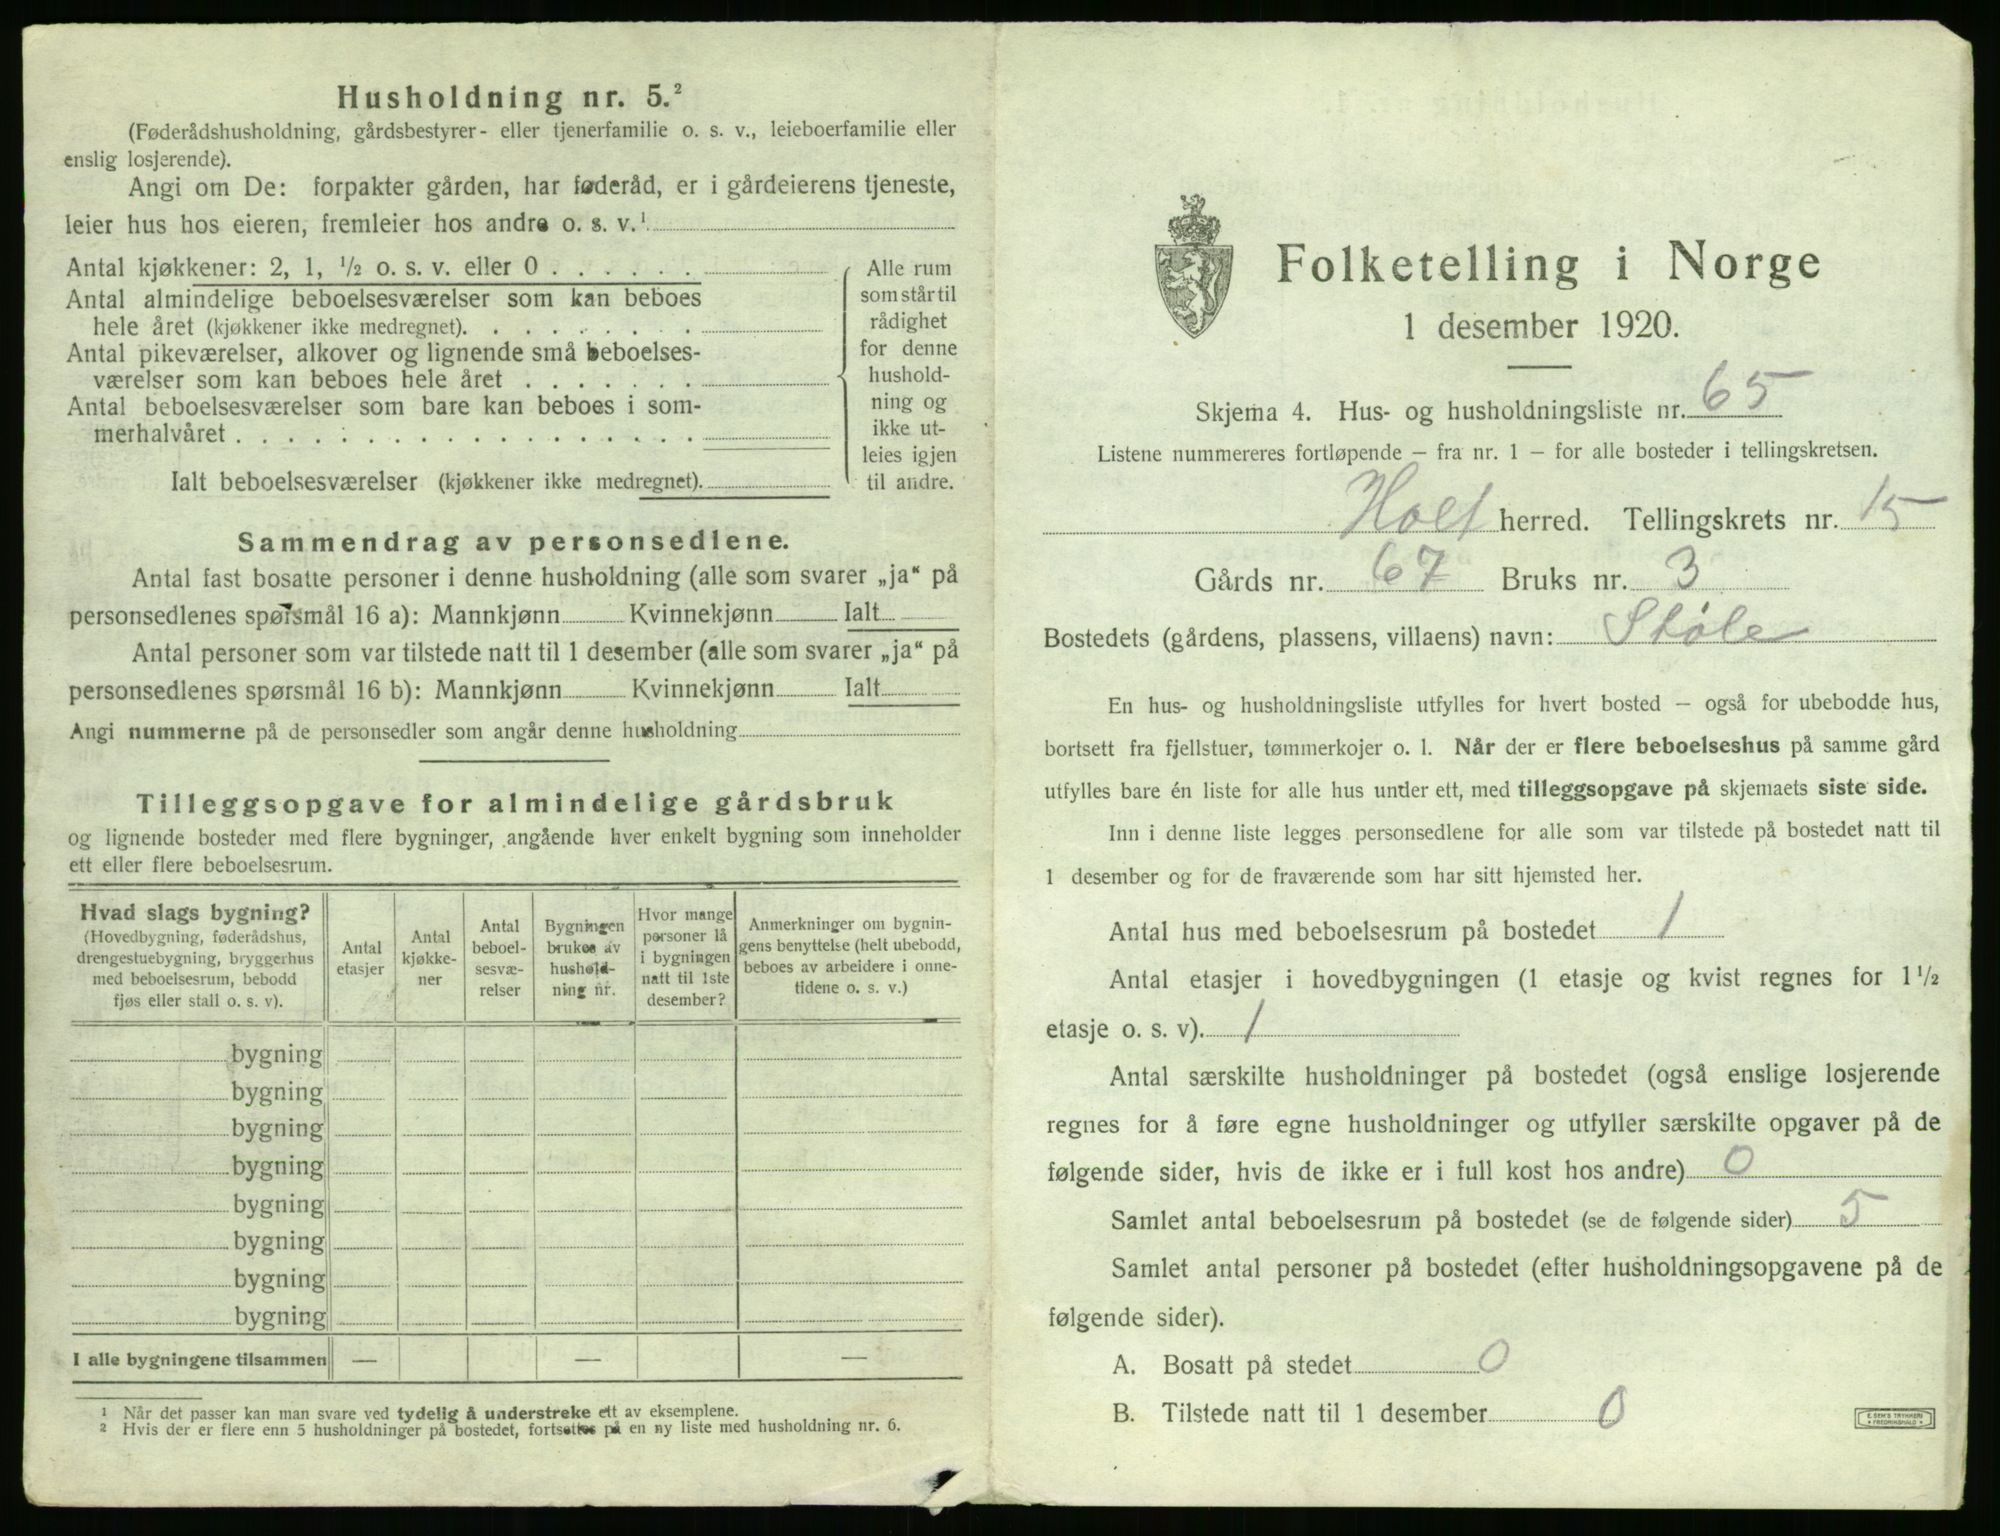 Husholdning nr. 5.²
(Føderådshusholdning, gårdsbestyrer- eller tjenerfamilie o. s. v., leieboerfamilie eller
enslig losjerende).
Angi om De: forpakter gården, har føderåd, er i gårdeierens tjeneste,
leier hus hos eieren, fremleier hos andre o. s. v.¹
Antal kjøkkener: 2, 1, ½ o. s. v. eller 0 . . . . . .
Antal almindelige beboelsesværelser som kan beboes
hele året (kjøkkener ikke medregnet). . . . . . . . .
Antal pikeværelser, alkover og lignende små beboelses-
værelser som kan beboes hele året . . . . . . .
Antal beboelsesværelser som bare kan beboes i som-
merhalvåret . . . . . . . . . . . . . . . . . .
Ialt beboelsesværelser (kjøkkener ikke medregnet).
Alle rum
som står til
rådighet
for denne
hushold-
ning og
ikke ut-
leies igjen
til andre.
Sammendrag av personsedlene.
Antal fast bosatte personer i denne husholdning (alle som svarer „ja“ på
personsedlenes spørsmål 16 a): Mannkjønn Kvinnekjønn Ialt
Antal personer som var tilstede natt til 1 desember (alle som svarer „ja“ på
personsedlenes spørsmål 16 b): Mannkjønn Kvinnekjønn Ialt
Angi nummerne på de personsedler som angår denne husholdning
Tilleggsopgave for almindelige gårdsbruk
og lignende bosteder med flere bygninger, angående hver enkelt bygning som inneholder
ett eller flere beboelsesrum.
Hvad slags bygning?
(Hovedbygning, føderådshus,
drengestuebygning, bryggerhus
med beboelsesrum, bebodd
fjøs eller stall o. s. v).
Antal
etasjer
Antal
kjøkke-
ner
Antal
beboel-
sesvæ-
relser
Bygningen
brukes av
hushold-
ning nr.
Hvor mange
personer lå
i bygningen
natt til 1ste
desember?
Anmerkninger om bygnin-
gens benyttelse (helt ubebodd,
beboes av arbeidere i onne-
tidene o. s. v.)
bygning
bygning
bygning
bygning
bygning
bygning
bygning
bygning
I alle bygningene tilsammen — — —
¹ Når det passer kan man svare ved tydelig å understreke ett av eksemplene.
² Hvis der er flere enn 5 husholdninger på bostedet, fortsettes på en ny liste med husholdning nr. 6.
Folketelling i Norge
1 desember 1920.
Skjema 4. Hus- og husholdningsliste nr. 65
Listene nummereres fortløpende – fra nr. 1 – for alle bosteder i tellingskretsen.
Holt herred. Tellingskrets nr. 15
Gårds nr. 67 Bruks nr. 3
Bostedets (gårdens, plassens, villaens) navn: Støle
En hus- og husholdningsliste utfylles for hvert bosted – også for ubebodde hus,
bortsett fra fjellstuer, tømmerkojer o. l. Når der er flere beboelseshus på samme gård
utfylles bare én liste for alle hus under ett, med tilleggsopgave på skjemaets siste side.
Inn i denne liste legges personsedlene for alle som var tilstede på bostedet natt til
1 desember og for de fraværende som har sitt hjemsted her.
Antal hus med beboelsesrum på bostedet 1
Antal etasjer i hovedbygningen (1 etasje og kvist regnes for 1 ½
etasje o. s. v). 1
Antal særskilte husholdninger på bostedet (også enslige losjerende
regnes for å føre egne husholdninger og utfyller særskilte opgaver på de
følgende sider, hvis de ikke er i full kost hos andre) 0
Samlet antal beboelsesrum på bostedet (se de følgende sider) 5
Samlet antal personer på bostedet (efter husholdningsopgavene på de
følgende sider).
A. Bosatt på stedet 0
B. Tilstede natt til 1 desember 0
E. SEM'S TRYKKERI
FREDRIKSHALD